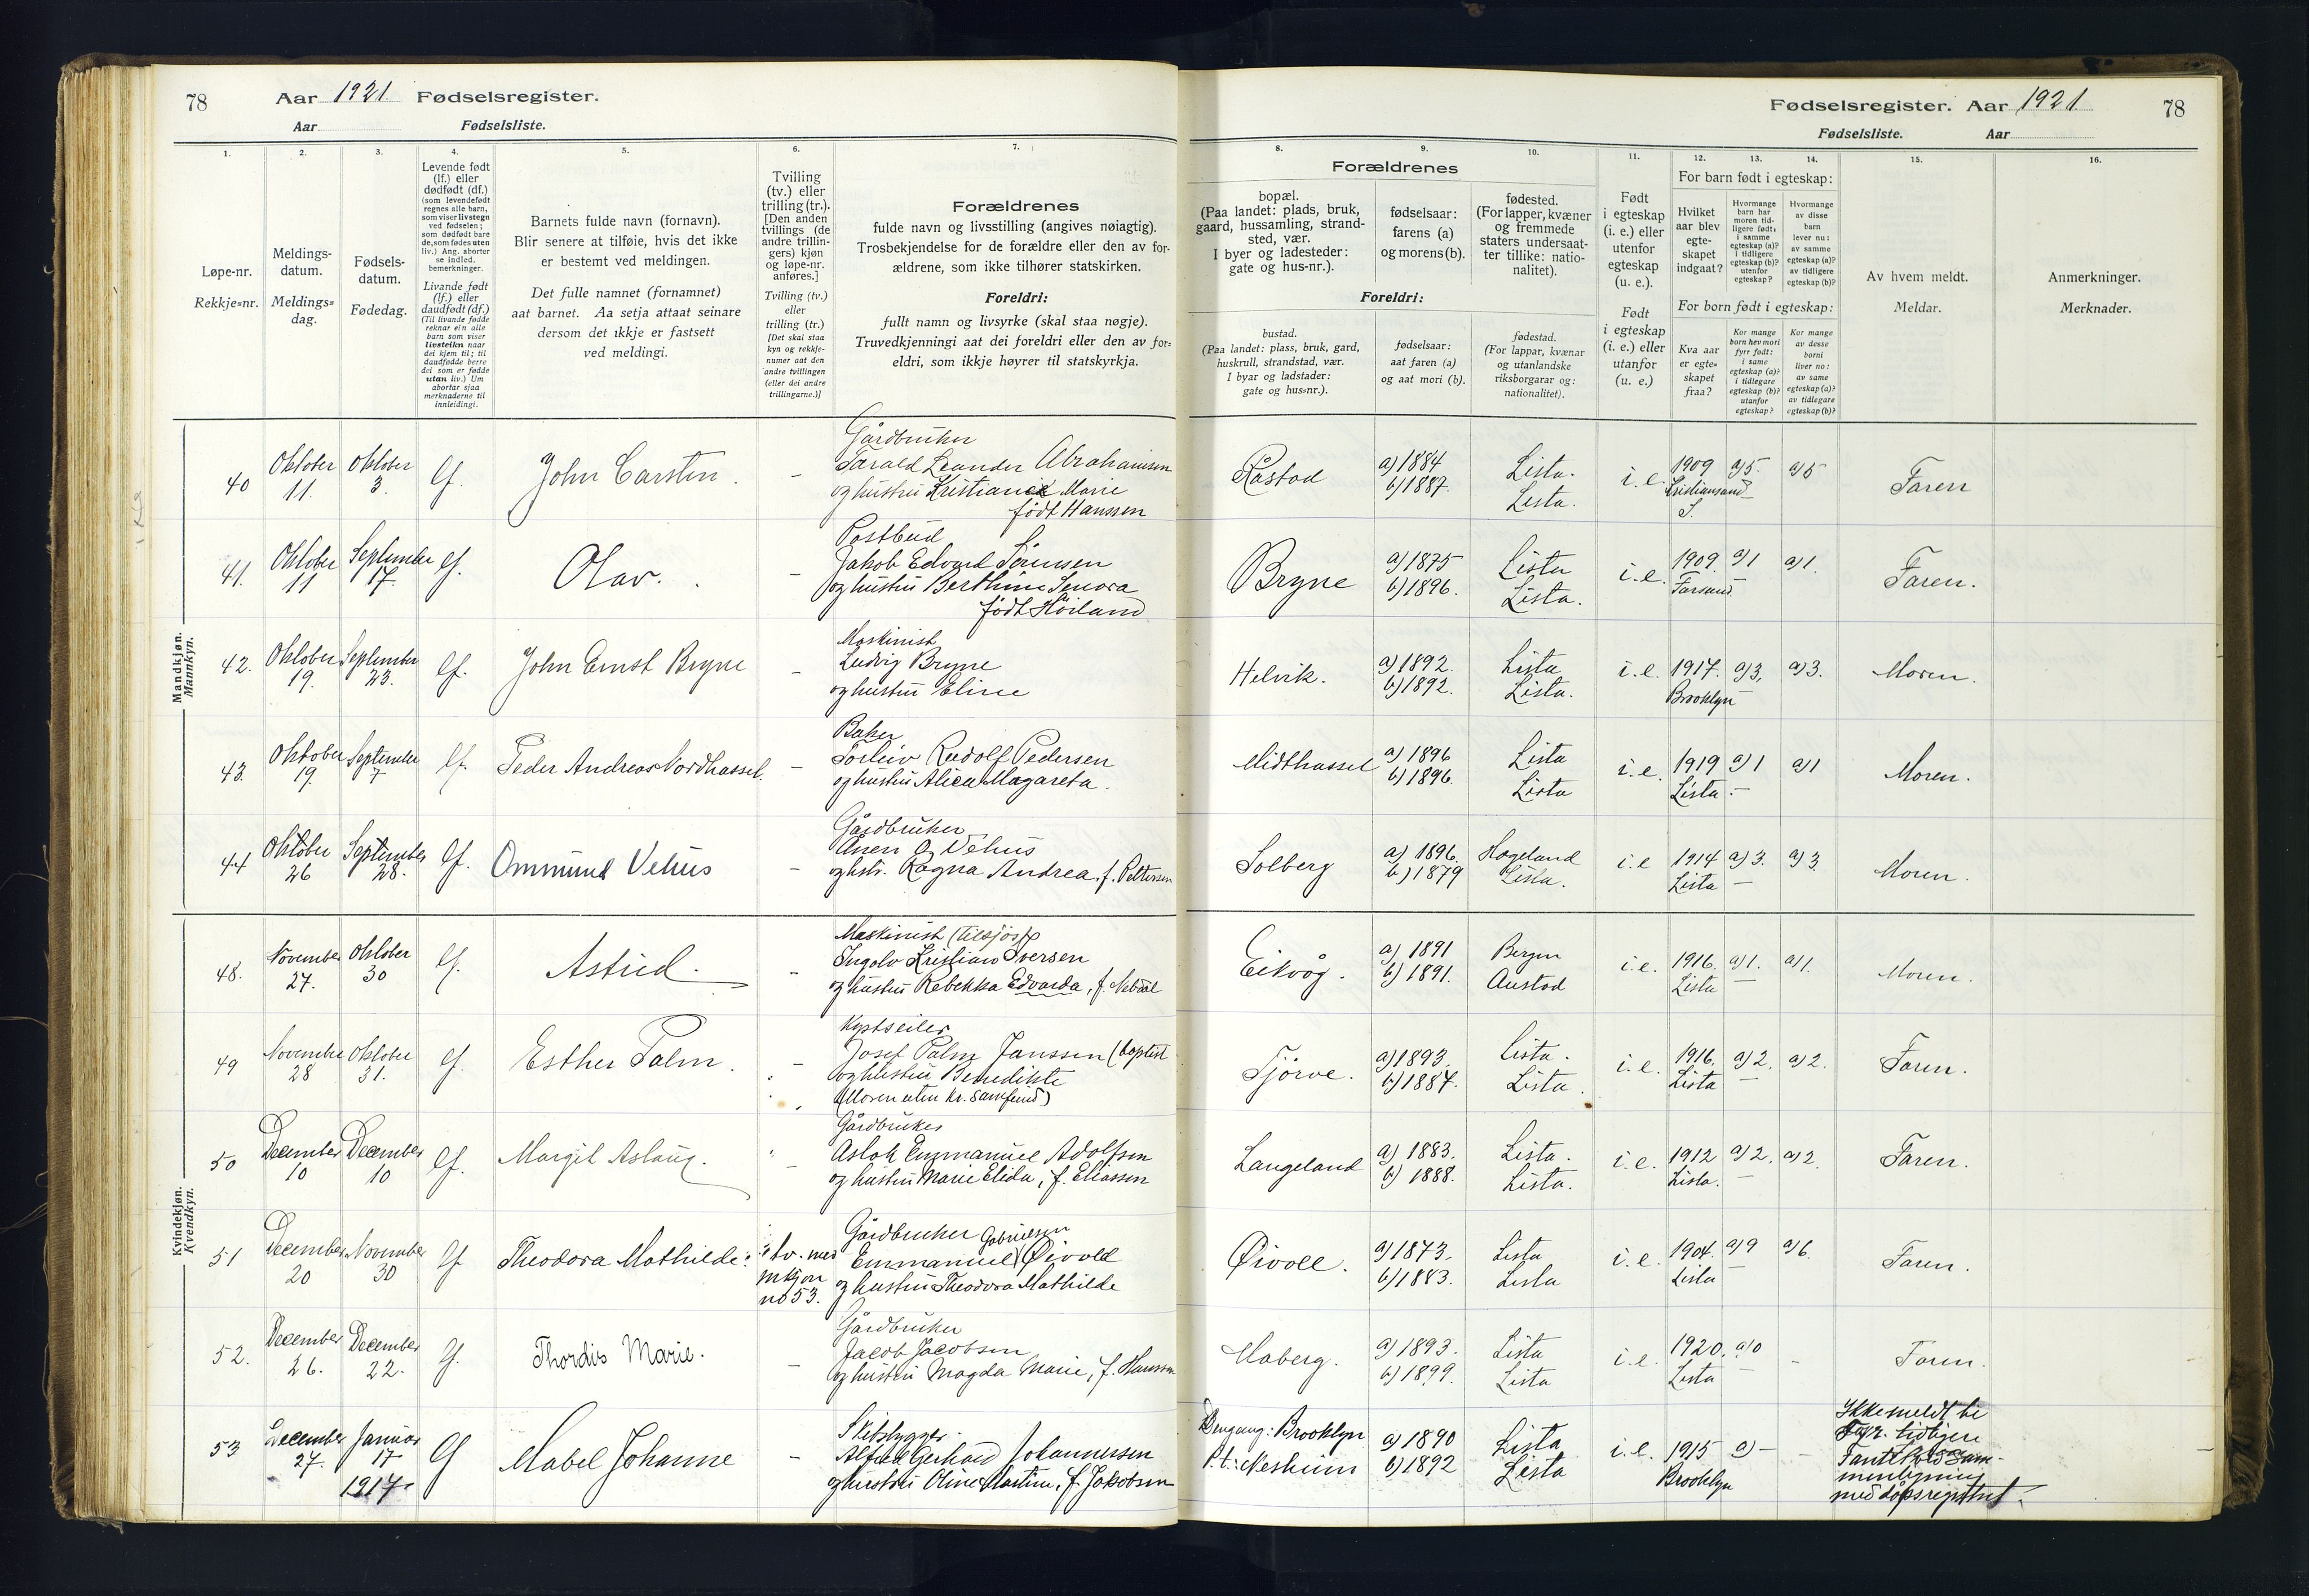 78 Aar 1921. Fødselsregister.
Aar Fødselsliste.
Fødselsregister. Aar 1921 78
Fødselsliste. Aar
1. 2. 3. 4. 5. 6. 7. 8. 9. 10. 11. 12. 13. 14. 15. 16.
Løpe-nr.
Rekkje=nr.
Meldings-
datum.
Meldings=
dag.
Fødsels-
datum.
Fødedag.
Levende født
(lf.) eller
dødfødt (df.)
(som levendefødt
regnes alle barn,
som viser livstegn
ved fødselen;
som dødfødt bare
de, som fødes uten
liv.) Ang. aborter
se indled.
bemerkninger.
Livande født
(lf.) eller
daudfødt (df.)
(Til livande fødde
reknar ein alle
barn som viser
livsteikn naar
dei kjem til; til
daudfødde berre
dei som er fødde
utan liv.) Um
abortar sjaa
merknaderne til
innleidingi.
Barnets fulde navn (fornavn).
Blir senere at tilføie, hvis det ikke
er bestemt ved meldingen.
Det fulle namnet (fornamnet)
aat barnet. Aa setja attaat seinare
dersom det ikkje er fastsett
ved meldingi.
Tvilling
(tv.) eller
trilling (tr.).
[Den anden
tvillings (de
andre trillin-
gers) kjøn
og løpe-nr.
anføres.]
Tvilling (tv.)
eller
trilling (tr.)
[Det skal staa
kyn og rekkje-
numer aat den
andre tvillingen
(eller dei andre
trillingarne.)]
Forældrenes
fulde navn og livsstilling (angives nøiagtig).
Trosbekjendelse for de forældre eller den av for-
ældrene, som ikke tilhører statskirken.
Foreldri:
fullt namn og livsyrke (skal staa nøgje).
Truvedkjenningi aat dei foreldri eller den av for=
eldri, som ikkje høyrer til statskyrkja.
Forældrenes
bopæl.
(Paa landet: plads, bruk,
gaard, hussamling, strand-
sted, vær.
I byer og ladesteder:
gate og hus-nr.).
fødselsaar:
farens (a)
og morens (b).
fødested.
(For lapper, kvæner
og fremmede
staters undersaat-
ter tillike: natio-
nalitet).
Foreldri:
bustad.
(Paa landet: plass, bruk, gard,
huskrull, strandstad, vær.
I byar og ladstader:
gate og hus=nr.).
fødselsaar:
aat faren (a)
og aat mori (b).
fødestad.
(For lappar, kvænar
og utanlandske
riksborgarar og:
nationalitet).
Født
i egteskap
(i. e.) eller
utenfor
egteskap
(u. e.).
Født
i egteskap
(i. e.) eller
utanfor
(u. e.)
For barn født i egteskap:
Hvilket
aar blev
egte-
skapet
indgaat?
Hvormange
barn har
moren tid-
ligere født:
i samme
egteskap (a)?
i tidligere
egteskap (b)?
utenfor
egteskap?
Hvormange
av disse
barn
lever nu:
av samme
egteskap (a)?
av tidligere
egteskap (b)?
For born født i egteskap:
Kva aar
er egte=
skapet
fraa?
Kor mange
born hev mori
fyrr født:
i same
egteskap (a)?
i tidlegare
egteskap (b)?
utanfor
egteskap?
Kor mange
av desse
borni
liver no:
av same
egteskap (a)?
av tidlegare
egteskap (b)?
Av hvem meldt.
Meldar.
Anmerkninger.
Merknader.
Mandkjøn.
Mannkyn.
40 Oktober 11. Oktober 3. lf. John Carsten. –
Gårdbruker
Tarald Leander Abrahamsen
og hustru Kristiane Marie
født Hanssen
Råstad a) 1884 b) 1887. Lista. Lista. i. e. 1909 Kristiansand S. a) 5. a) 5 Faren
41. Oktober 11 September 17. lf. Olav. –
Postbud
Jakob Edvard Sørensen
og hustru Berthine Senora
født Höiland
Bryne a) 1875 b) 1896. Lista Lista. i. e. 1909. Farsund a) 1 a) 1. Faren.
42. Oktober 19. September 23. lf. John Ernst Bryne –
Maskinist
Ludvig Bryne
og hustru Eline
Helvik. a) 1892. b) 1892. Lista Lista. i. e. 1917. Brooklyn a) 3. a) 3. Moren.
43. Oktober 19. September 7 lf. Peder Andreas Nordhassel. –
Baker
Torleiv Rudolf Pedersen
og hustru Alica Magareta.
Midthassel a) 1896 b) 1896. Lista Lista i. e. 1919 Lista. a) 1 a) 1 Moren.
44 Oktober 26 September 28. lf. Ommund Vehus –
Gårdbruker
Anen O. Vehus
og hstr. Ragna Andrea, f. Pettersen
Solberg a) 1896. b) 1879 Hægeland Lista. i. e 1914 Lista a) 3. a) 3 Moren.
Kvindekjøn.
Kvendkyn.
48. November 27. Oktober 30 lf. Astrid. –
Maskinist (tilsjøs)
Ingolv Kristian Iversen
og hustru Rebekka Edvarda, f. Nebdal
Eikvåg. a) 1891 b) 1891. Bergen Austad i. e. 1916. Lista a) 1. a) 1. Moren.
49 November 28 Oktober 31. lf. Esther Palm. –
Kystseiler
Josef Palm Janssen (baptist
og hustru Benedikte
(Moren uten kr. samfund)
Tjörve. a) 1893. b) 1887. Lista. Lista. i. e. 1916. Lista a) 2. a) 2. Faren.
50 December 10 December 10 lf. Margit Aslaug. –
Gårdbruker
Aslak Emmanuel Adolfsen
og hustru Marie Elida, f. Eliassen
Langeland a) 1883. b) 1888. Lista. Lista. i. e. 1912 Lista. a) 2. a) 2. Faren.
51 December 20 November 30 lf Theodora Mathilde. tv. med mkjøn no 53.
Gårdbruker Gabrielsen
Emmanuel Øivold
og hustru Theodora Mathilde
Øivoll. a) 1873. b) 1883. Lista Lista i. e. 1904. Lista a) 9 a) 6. Faren.
52. December 26. December 22. lf. Thordis Marie. –
Gårdbruker
Jacob Jacobsen
og hustru Magda Marie, f. Hanssen
Maberg. a) 1893. b) 1899. Lista Lista i. e. 1920. Lista a) 0 – Faren.
53 December 27. Januar 17 1917. lf Mabel Johanne –
Skibsbygger.
Alfred Gerhard Johannessen
og hustru Oline Martine, f. Jakobsen
Dengang: Brooklyn P. t.: Nesheim a) 1890 b) 1892 Lista Lista i. e. 1915 Brooklyn a) – –
Ikke meldt
tidligere
med dåpsregistret.